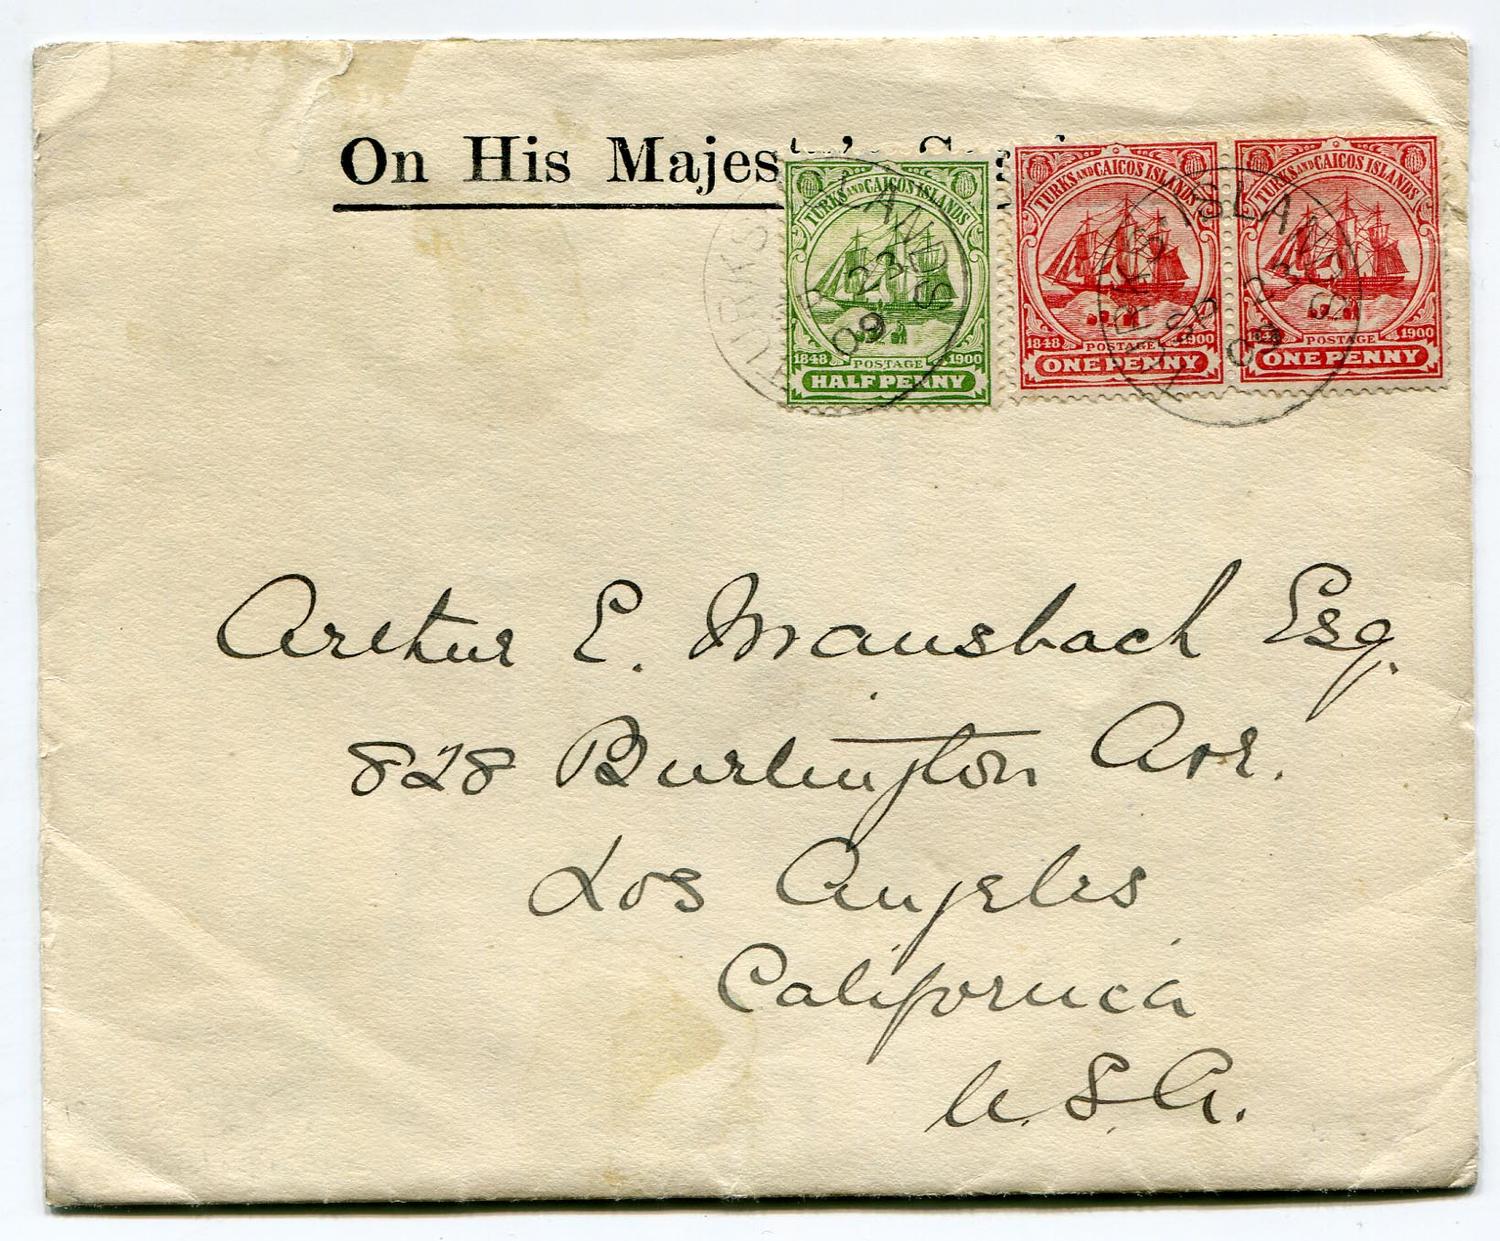 On His Majesty's
TURKS AND CAICOS ISLANDS
1848 POSTAGE 1900
HALFPENNY
TURKS AND CAICOS ISLANDS
1848 POSTAGE 1900
ONE PENNY
TURKS AND CAICOS ISLANDS
1848 POSTAGE 1900
ONE PENNY
TURKS ISLANDS
SP 23
09
TURKS ISLANDS
SP 23
09
Arthur E. Mausbach Esq.
828 Burlington Ave.
Los Angeles
California
U.S.A.